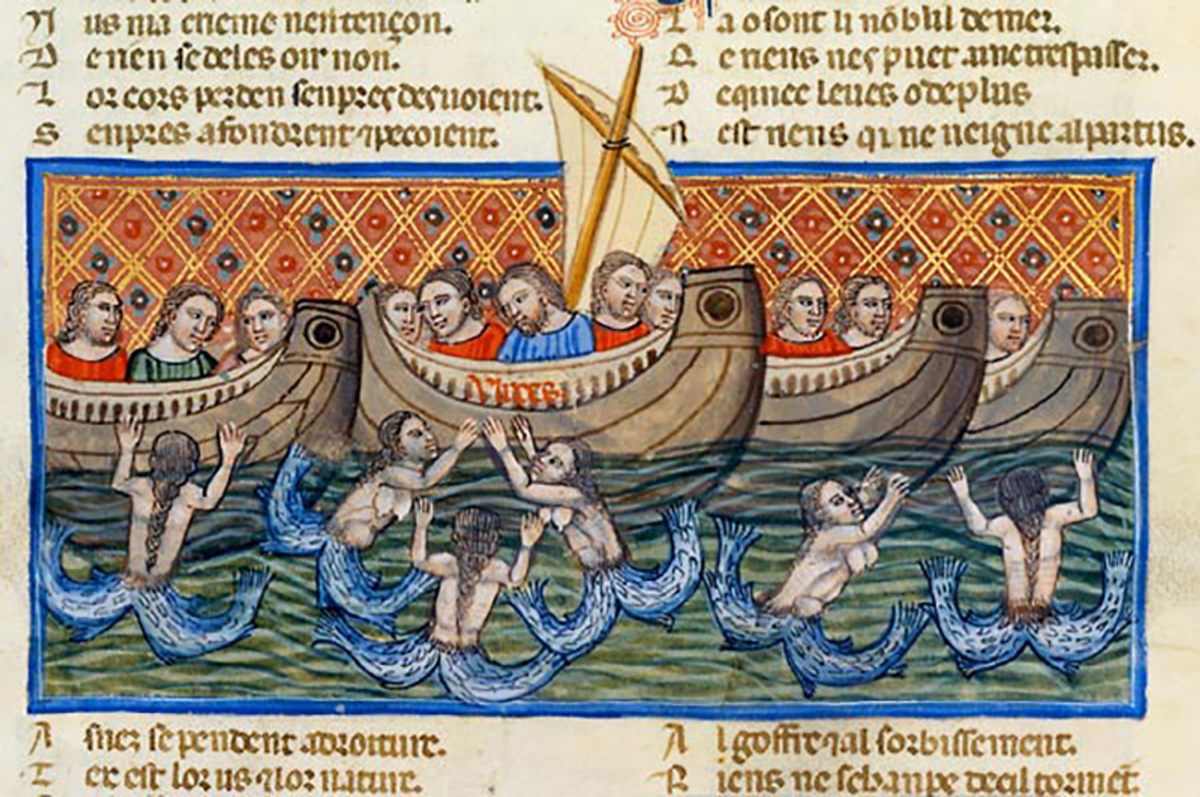 N us ma crieme nen tençon.
D e nen se deles oir non.
L or cors perden senpres desuoient.
S enpres afondrent ⁊ pecoient.
L a o sont li nōblil de mer.
Q e niens nes puet trespasser.
D leues o de plus
N est niens qi ne al partus.
Vlixes
A se pendent a droiture.
T ex est lor us ⁊ lor nature.
A l goffre ⁊ al sorbissement.
R iens ne schanpe de cil tormēt.